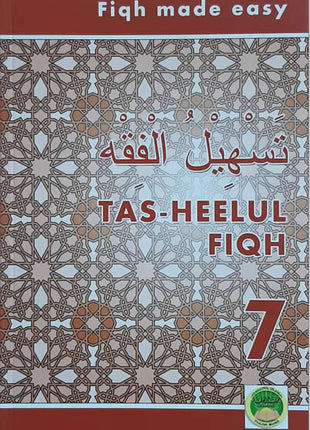 Fiqh made easy
تَسْهِيْلُ الْفِقْه
TAS-HEELUL
FIQH
7